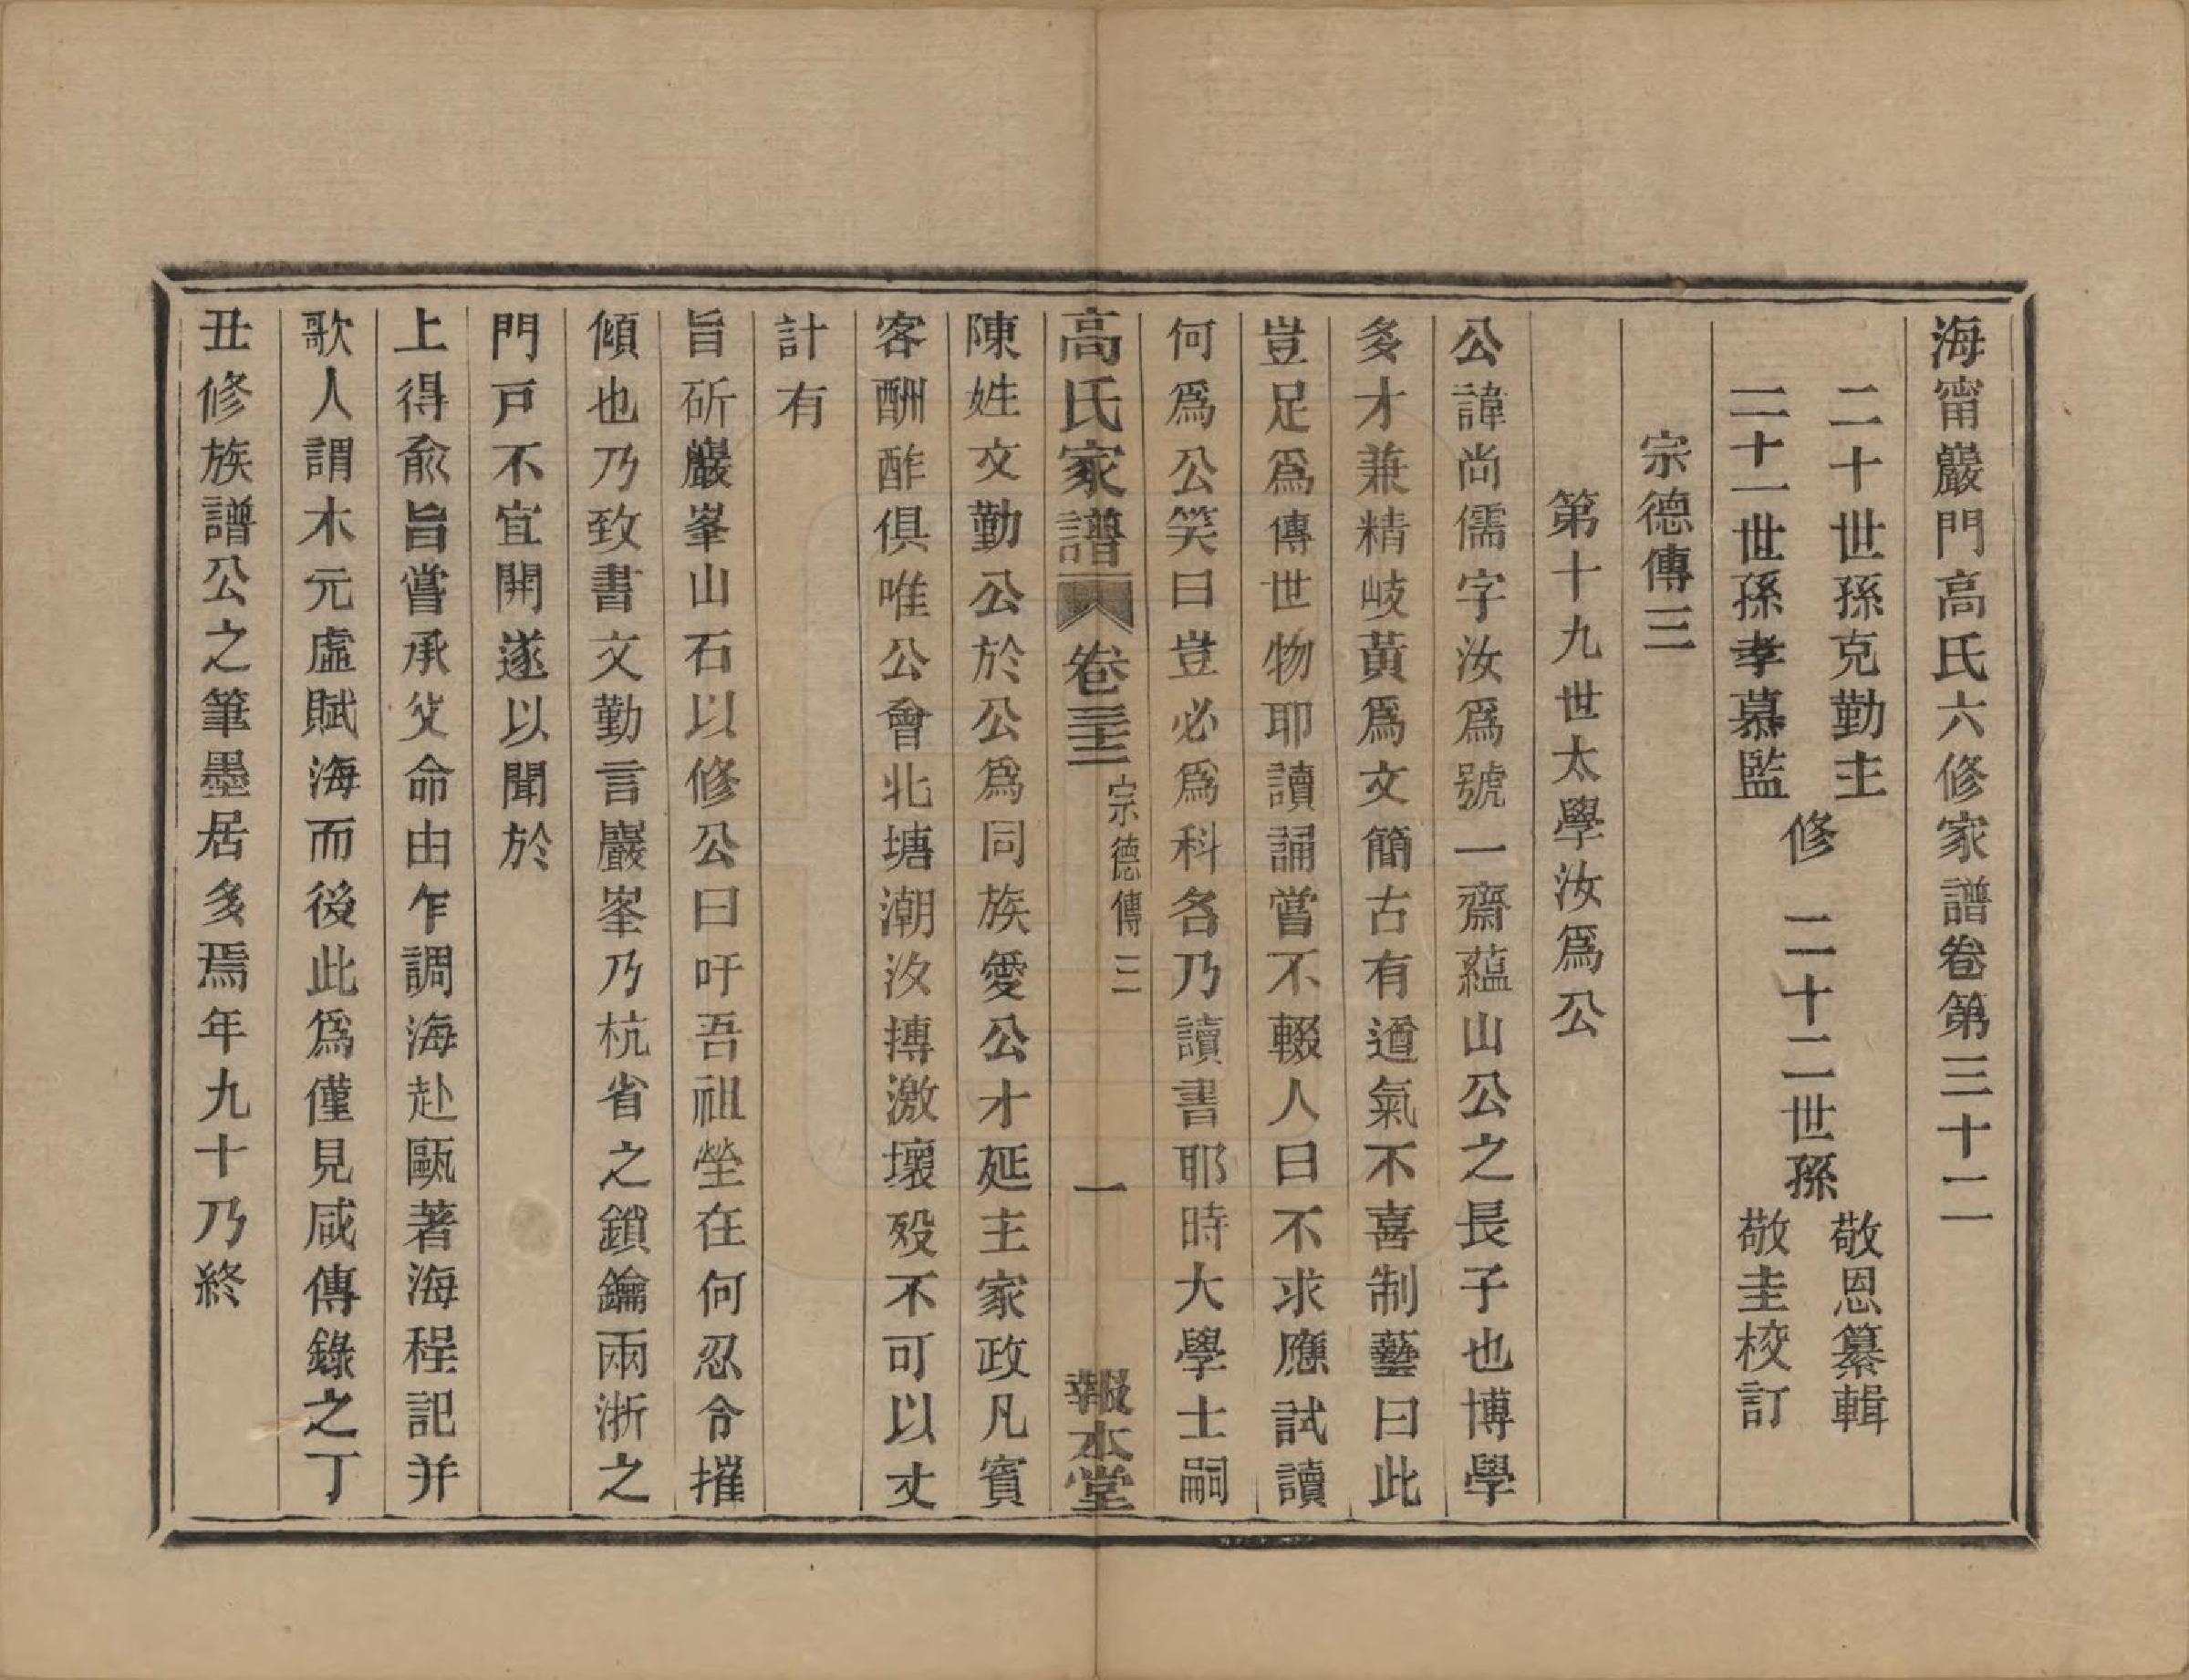 海甯巖門高氏六修家譜卷第三十二
二十世孫克勤主
二十一世孫孝慕監
修
二十二世孫
敬恩纂輯
敬圭校訂
宗德傳三
第十九世太學汝爲公
公諱尚儒字汝爲號一齋蘊山公之長子也博學
多才兼精岐黃爲文簡古有遒氣不喜制藝曰此
豈足爲傳世物耶讀誦嘗不輟人曰不求應試讀
何爲公笑曰豈必爲科名乃讀書耶時大學士嗣
高氏家譜
卷三十二
宗德傳三
一
報本堂
陳姓文勤公於公爲同族愛公才延主家政凡賓
客酬酢俱唯公會北塘潮汝摶激壞殁不可以丈
計有
旨斫巖峯山石以修公曰吁吾祖塋在何忍令摧
傾也乃致書文勤言巖峯乃杭省之鎖鑰兩浙之
門戸不宜開遂以聞於
上得俞旨嘗承父命由乍調海赴甌著海程記并
歌人謂木元虛賦海而後此爲僅見咸傳錄之丁
丑修族譜公之筆墨居多焉年九十乃終